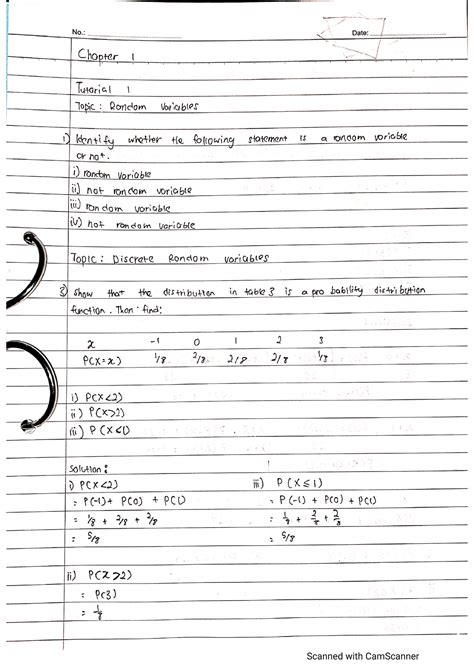 No.: Date:
Chapter 1
Tutorial 1
Topic : Random Variables
1) Identify whether the following statement is a random variable
or not.
i) random variable
ii) not random variable
iii) random variable
iv) not random variable
Topic : Discrete Random variables
3) Show that the distribution in table 3 is a probability distribution
function. Then find:
x -1 0 1 2 3
P(X=x) 1/8 2/8 2/8 2/8 1/8
i) P(X<2)
ii) P(X>2)
iii) P(X≤1)
Solution :
i) P(X<2) iii) P(X≤1)
= P(-1) + P(0) + P(1) = P(-1) + P(0) + P(1)
= 1/8 + 2/8 + 2/8 = 1/8 + 2/8 + 2/8
= 5/8 = 5/8
ii) P(X>2)
= P(3)
= 1/8
Scanned with CamScanner